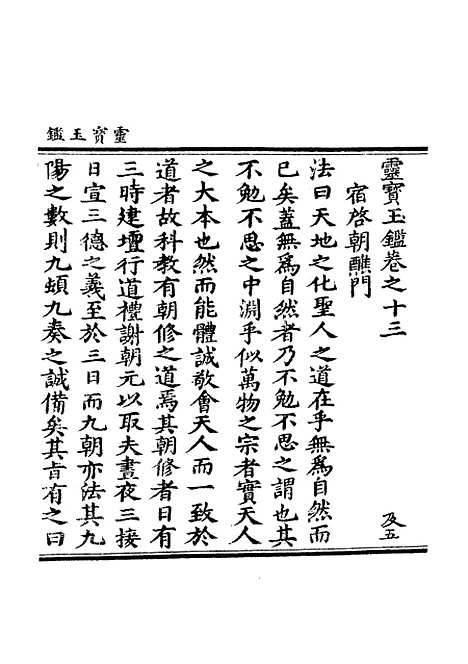 靈寶玉鑑
靈寶玉鑑卷之十三
及五
宿啓朝醮門
法曰天地之化聖人之道在乎無為自然而
已矣蓋無為自然者乃不勉不思之謂也其
不勉不思之中淵乎似萬物之宗者實天人
之大本也然而能體誠敬會天人而一致於
道者故科教有朝修之道焉其朝修者日有
三時建壇行道禮謝朝元以取夫晝夜三接
日宣三德之義至於三日而九朝亦法其九
陽之數則九頓九奏之誠備矣其旨有之曰